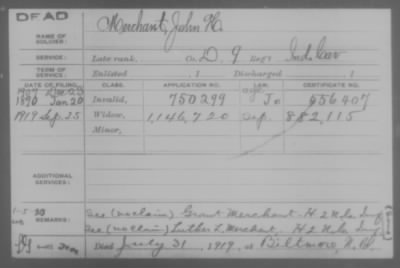 DEAD
Merchant, John H.
NAME OF SOLDIER:
SERVICE: Late rank, Co. D, 9 Reg't Ind. Cav
TERM OF SERVICE: Enlisted , 1 Discharged , 1
DATE OF FILING. CLASS. APPLICATION NO. LAW. CERTIFICATE NO.
1890 Jan 20 Invalid, 750299 556407
1919 Sep. 25 Widow, 1,146,720 882,115
Minor,
ADDITIONAL SERVICES:
REMARKS: See (no claim) Grant Merchant - H 2 N.C. Inf
See (no claim) Luther L. Merchant - H 2 N.C. Inf
Died July 31, 1919, at Biltmore, N.C.